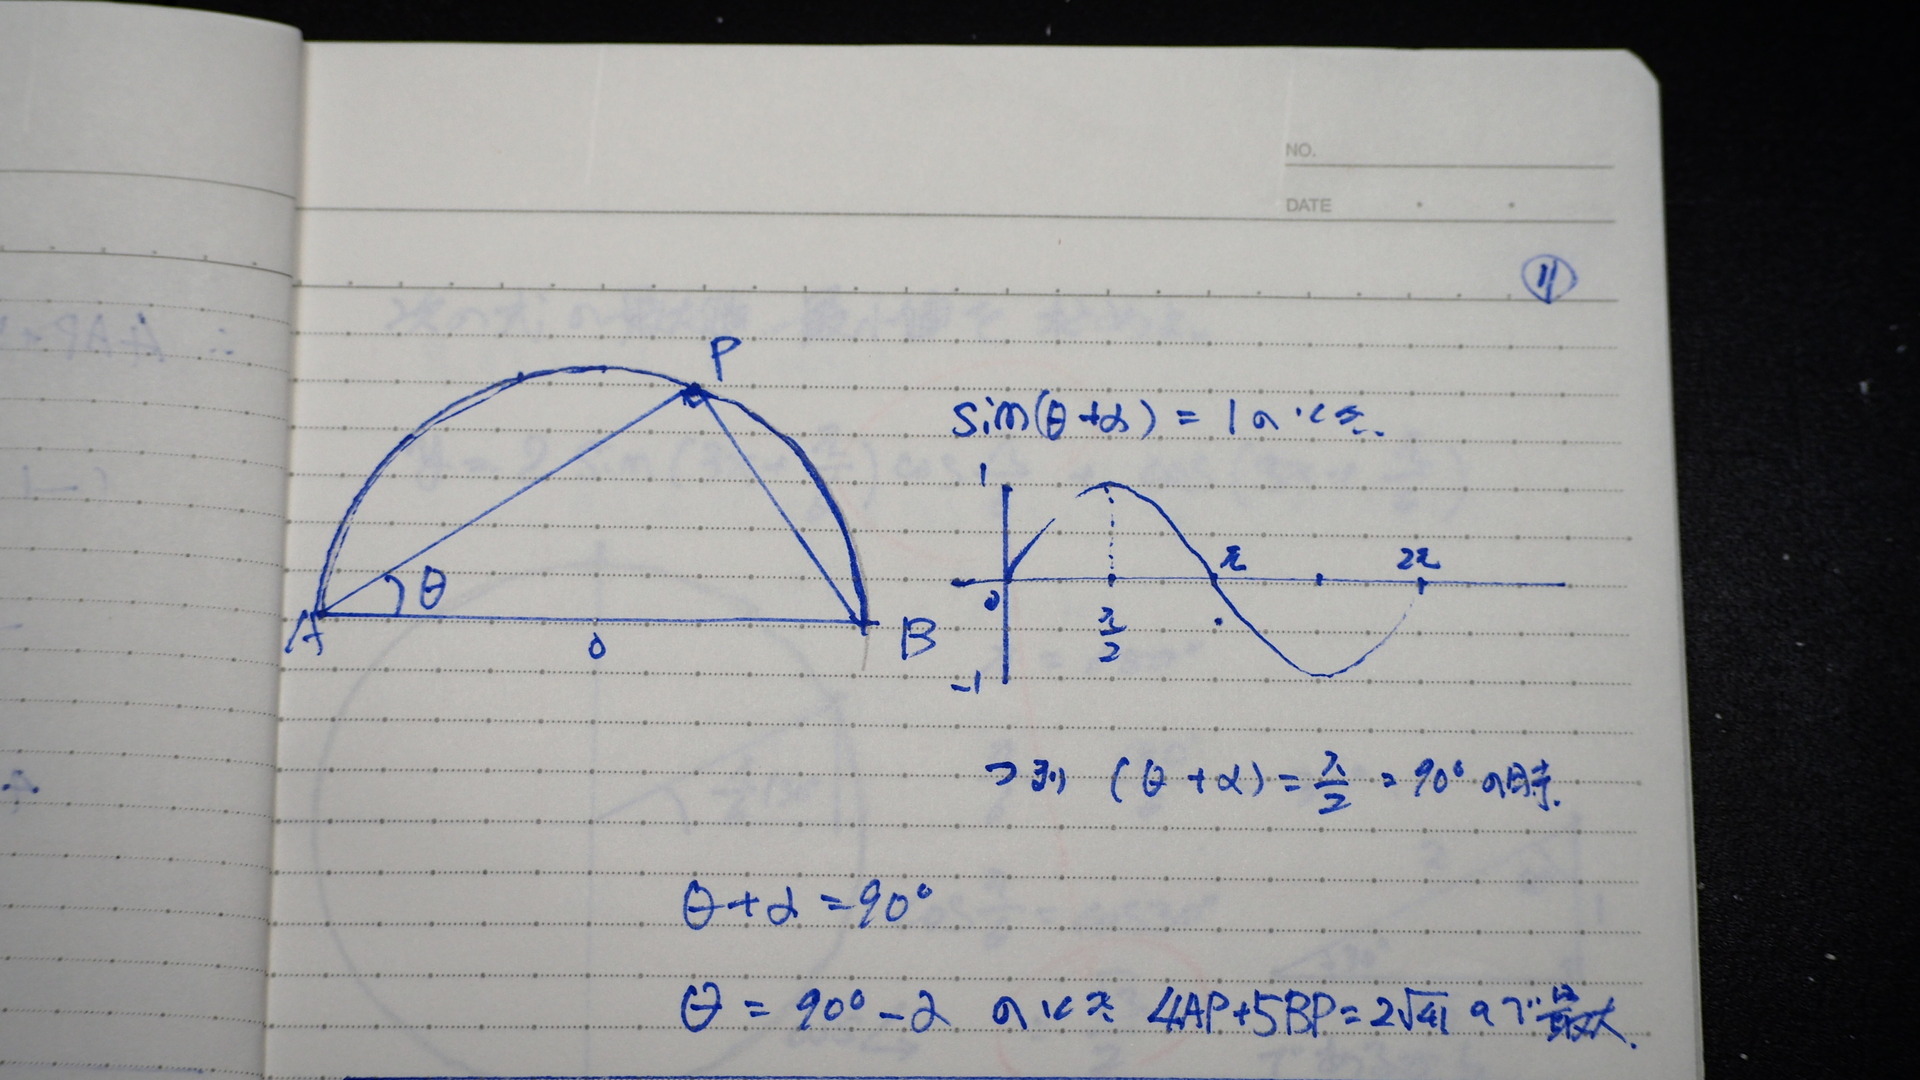 NO.
DATE
⑪
P
θ
A
O
B
sin(θ+α) = 1のとき.
1
0
π/2
π
2π
-1
つまり (θ+α) = π/2 = 90° の時.
θ+α = 90°
θ = 90° - α のとき 4AP+5BP = 2√41 ので最大.
∴ 4AP+